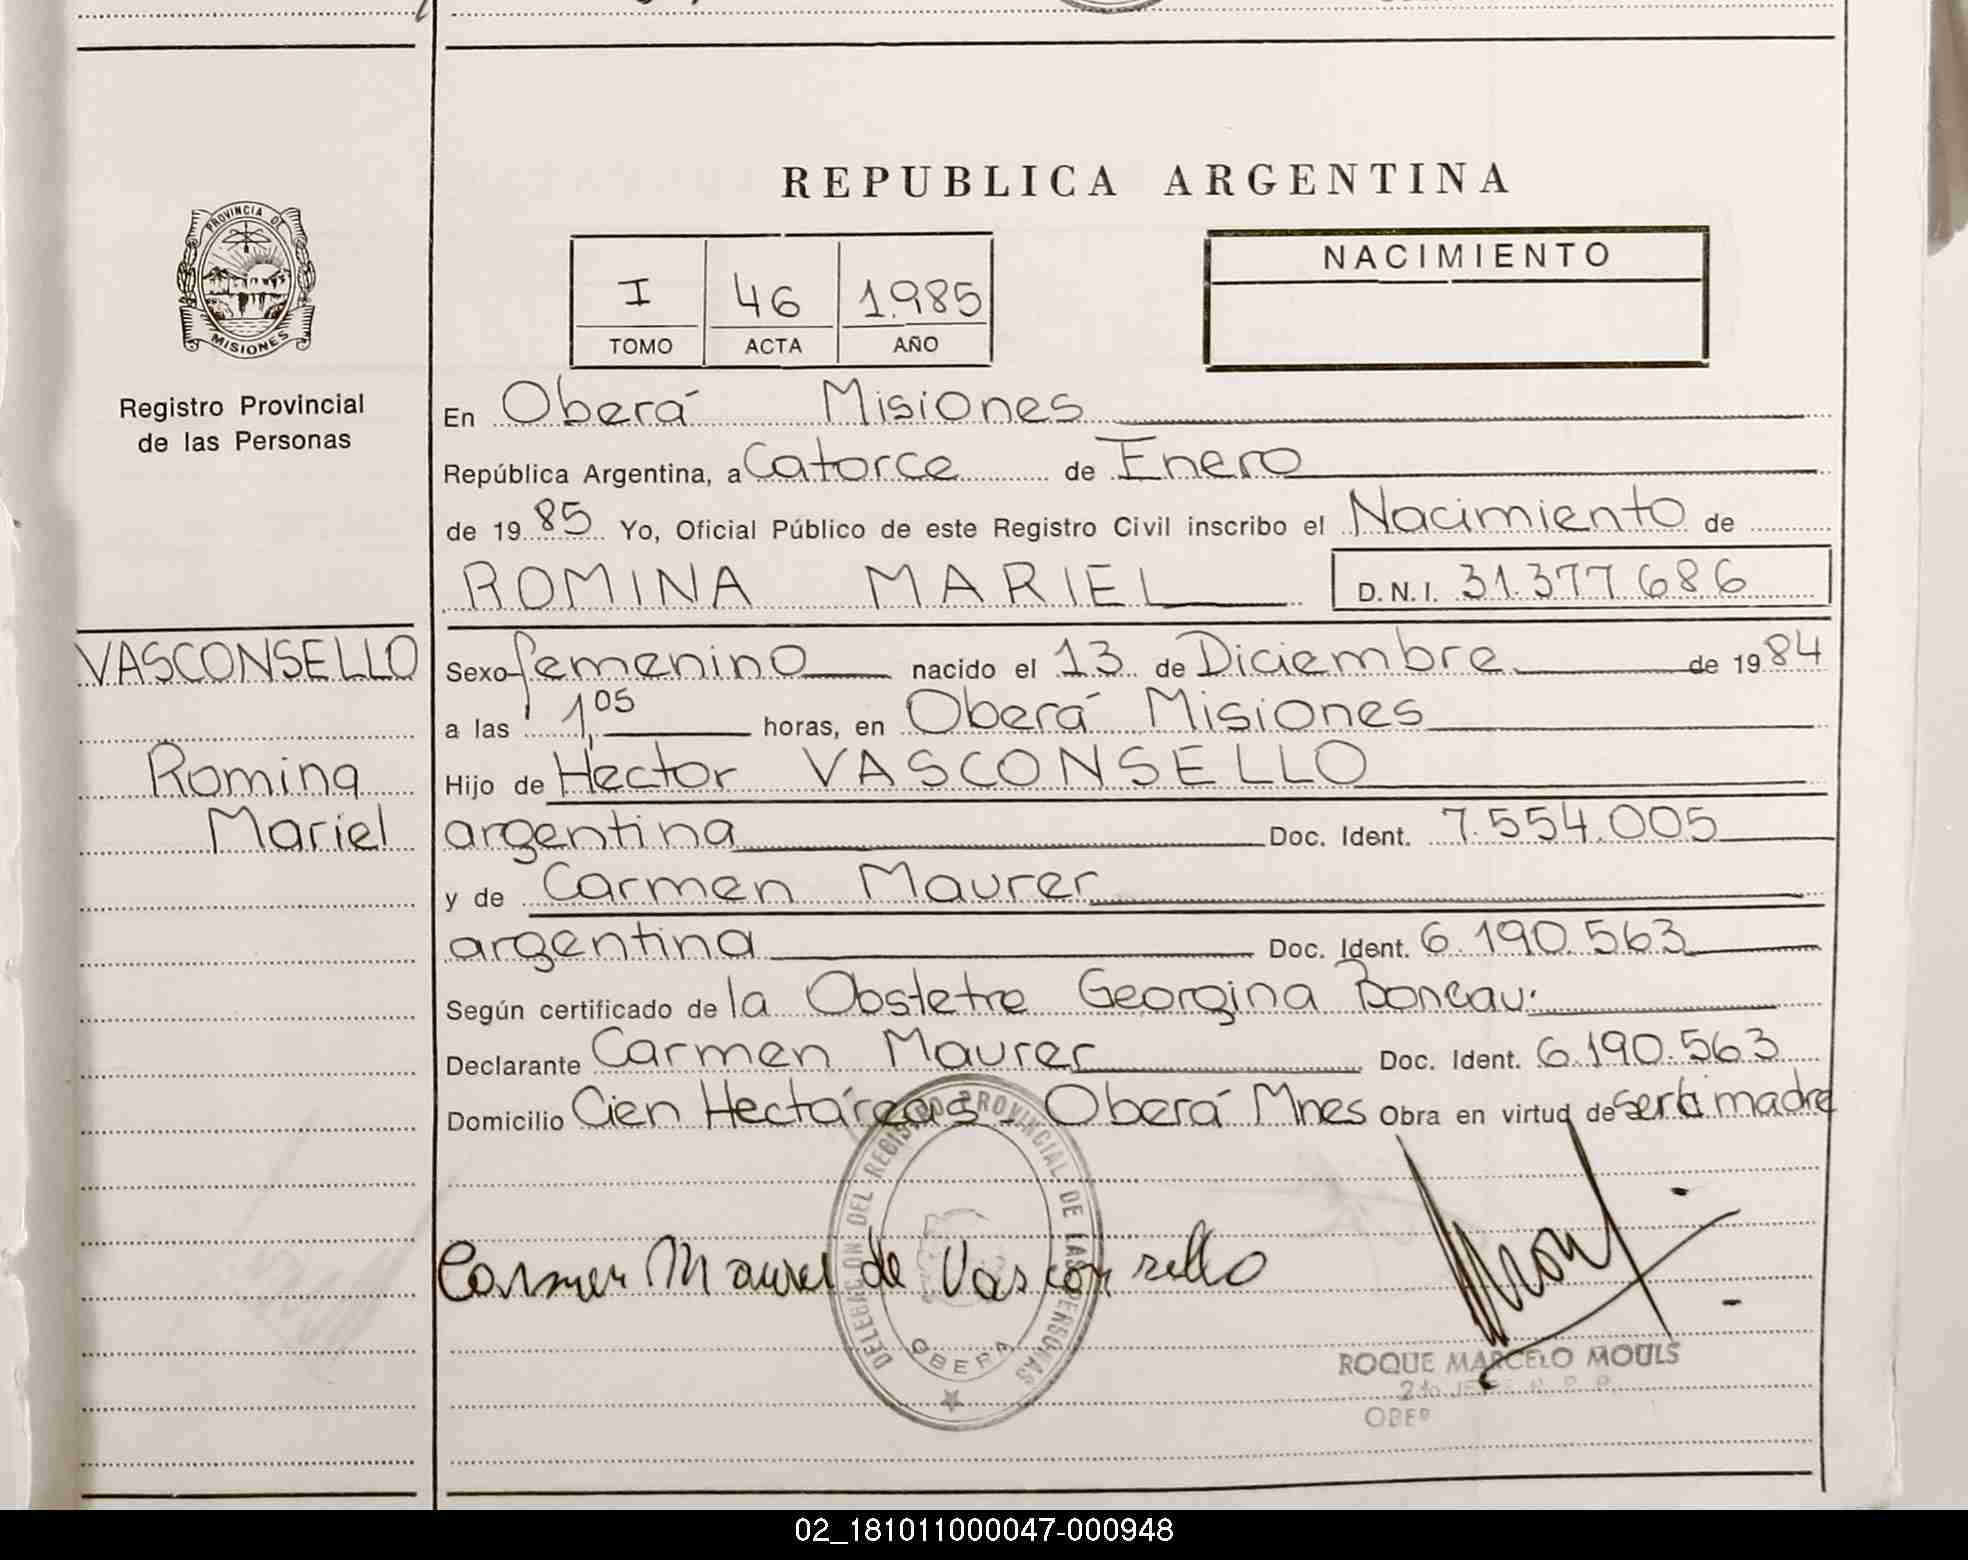 REPUBLICA ARGENTINA
PROVINCIA DE
MISIONES
Registro Provincial
de las Personas
I 46 1.985
TOMO ACTA AÑO
NACIMIENTO
En Oberá Misiones
República Argentina, a Catorce de Enero
de 19 85 Yo, Oficial Público de este Registro Civil inscribo el Nacimiento de
ROMINA MARIEL D.N.I. 31.377.686
VASCONSELLO
Romina
Mariel
Sexo femenino nacido el 13 de Diciembre de 19 84
a las 1,05 horas, en Oberá Misiones
Hijo de Hector VASCONSELLO
argentina Doc. Ident. 7.554.005
y de Carmen Maurer
argentina Doc. Ident. 6.190.563
Según certificado de la Obstetre Georgina
Declarante Carmen Maurer Doc. Ident. 6.190.563
Domicilio Cien Hectáreas - Oberá Mnes Obra en virtud de ser la madre
DELEGACION DEL REGISTRO PROVINCIAL DE LAS PERSONAS
OBERA
Carmen Maurer de Vasconsello
ROQUE MARCELO MOULS
02_181011000047-000948